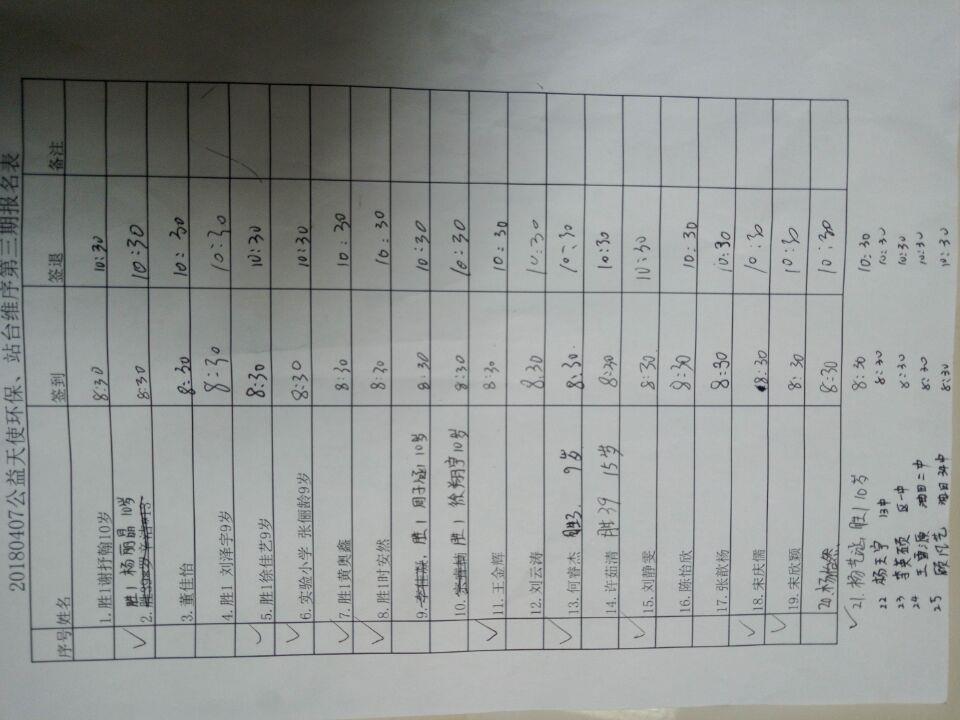 20180407公益天使环保、站台维序第三期报名表
序号 姓名 签到 签退 备注
1. 胜1谢抒翰10岁 8:30 10:30
2. 胜1 杨丽晶 10岁 8:30 10:30
3. 董佳怡 8:30 10:30
4. 胜1 刘泽宇9岁 8:30 10:30
5. 胜1徐佳艺9岁 8:30 10:30
6. 实验小学 张俪龄9岁 8:30 10:30
7. 胜1黄奥鑫 8:30 10:30
8. 胜1时安然 8:30 10:30
9. 胜1 周子涵 10岁 8:30 10:30
10. 胜1 徐翔宇10岁 8:30 10:30
11. 王金辉 8:30 10:30
12. 刘云涛 8:30 10:30
13. 何睿杰 胜3 9岁 8:30 10:30
14. 许如清 胜39 15岁 8:30 10:30
15. 刘静雯 8:30 10:30
16. 陈怡欣 8:30 10:30
17. 张歆杨 8:30 10:30
18. 宋庆儒 8:30 10:30
19. 宋欣颖 8:30 10:30
20. 杨怡然 8:30 10:30
21. 杨艺 胜1 10岁 8:30 10:30
22 杨天宇 13中 8:30 10:30
23 李英硕 区一中 8:30 10:30
24 王雪源 油田二中 8:30 10:30
25 顾凡艺 8:30 10:30